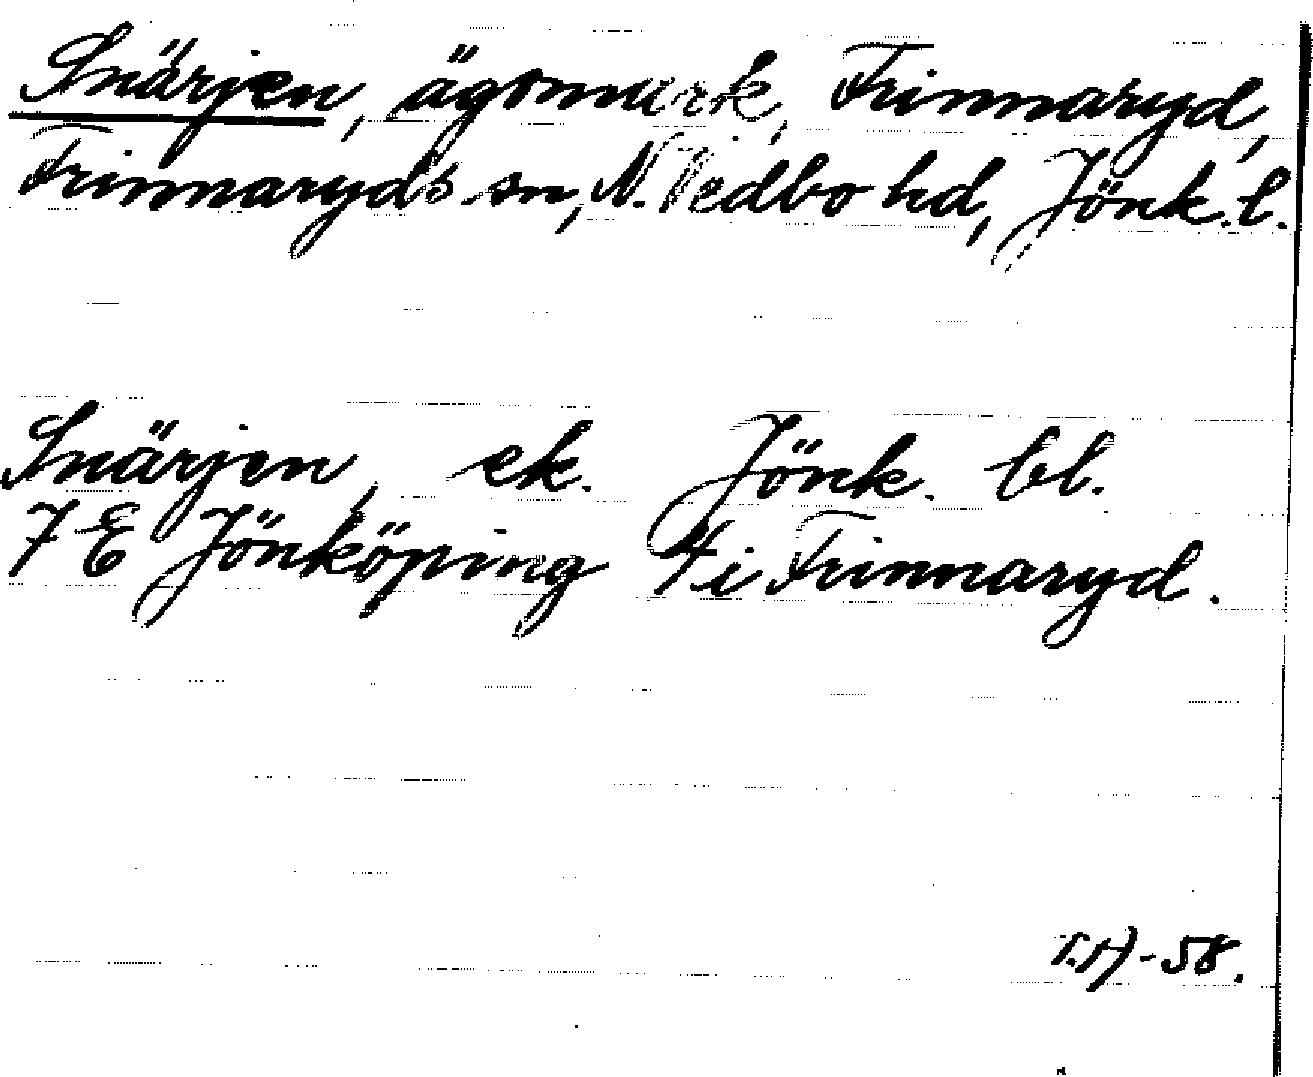 Snärjen, ägomark, Frinnaryd,
Frinnaryds sn, N. Vedbo hd, Jönk. l.
Snärjen, ek. Jönk. bl.
7 E Jönköping 4 i Frinnaryd.
T.H-58.